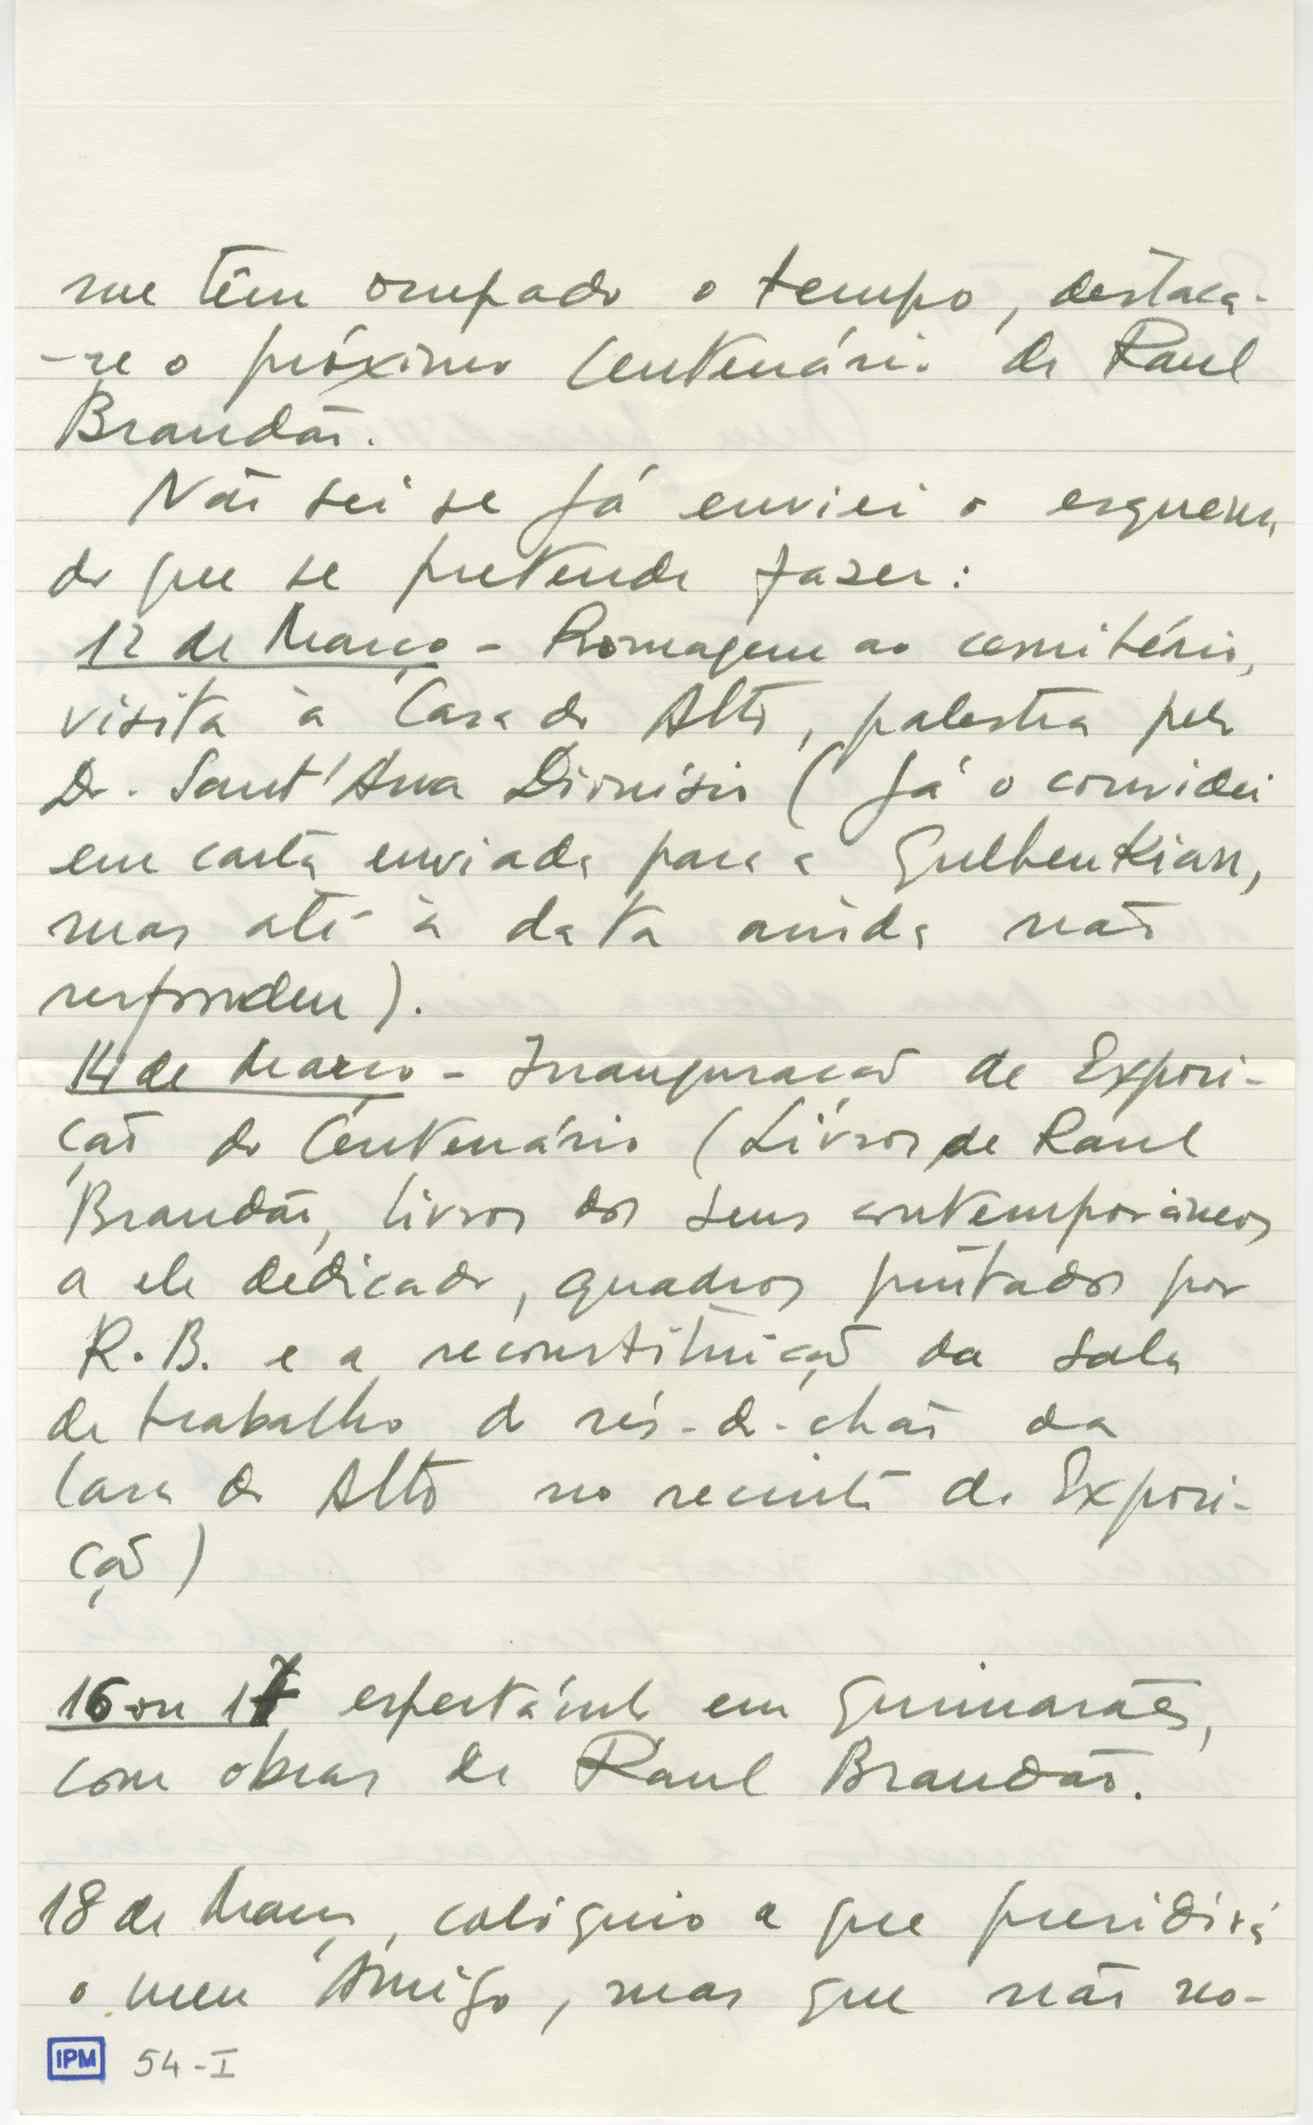 me têm ocupado o tempo, destaca-
-se o próximo Centenário de Raul
Brandão.
Não sei se já enviei o esquema
do que se pretende fazer:
12 de Março - Romagem ao cemitério,
visita à Casa do Alto, palestra pelo
Dr. Sant'Ana Dionísio (já o convidei
em carta enviada para a Gulbenkian,
mas até à data ainda não
respondeu).
14 de Março - Inauguração da Exposi-
ção do Centenário (Livros de Raul
Brandão, livros dos seus contemporâneos
a ele dedicado, quadros pintados por
R. B. e a reconstituição da sala
de trabalho do rés-do-chão da
Casa do Alto no recinto da Exposi-
ção)
16 ou 17 espectáculo em Guimarães,
com obras de Raul Brandão.
18 de Março, colóquio a que presidirá
o meu Amigo, mas que não no-
IPM 54-I